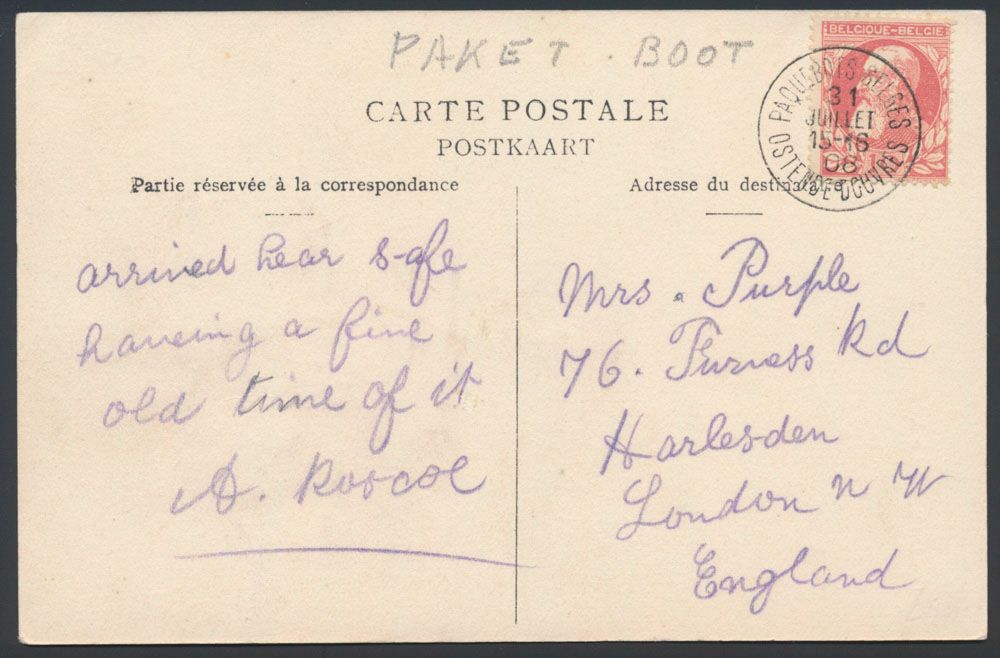 PAKET. BOOT
BELGIQUE-BELGIE
PAQUEBOTS BELGES
31
JUILLET
15-16
08
OSTENDE-DOUVRES
CARTE POSTALE
POSTKAART
Partie réservée à la correspondance
arrived hear safe
haveing a fine
old time of it
A. Roscoe
Adresse du destinataire
Mrs. Purple
76. Furness Rd
Harlesden
London N W
England